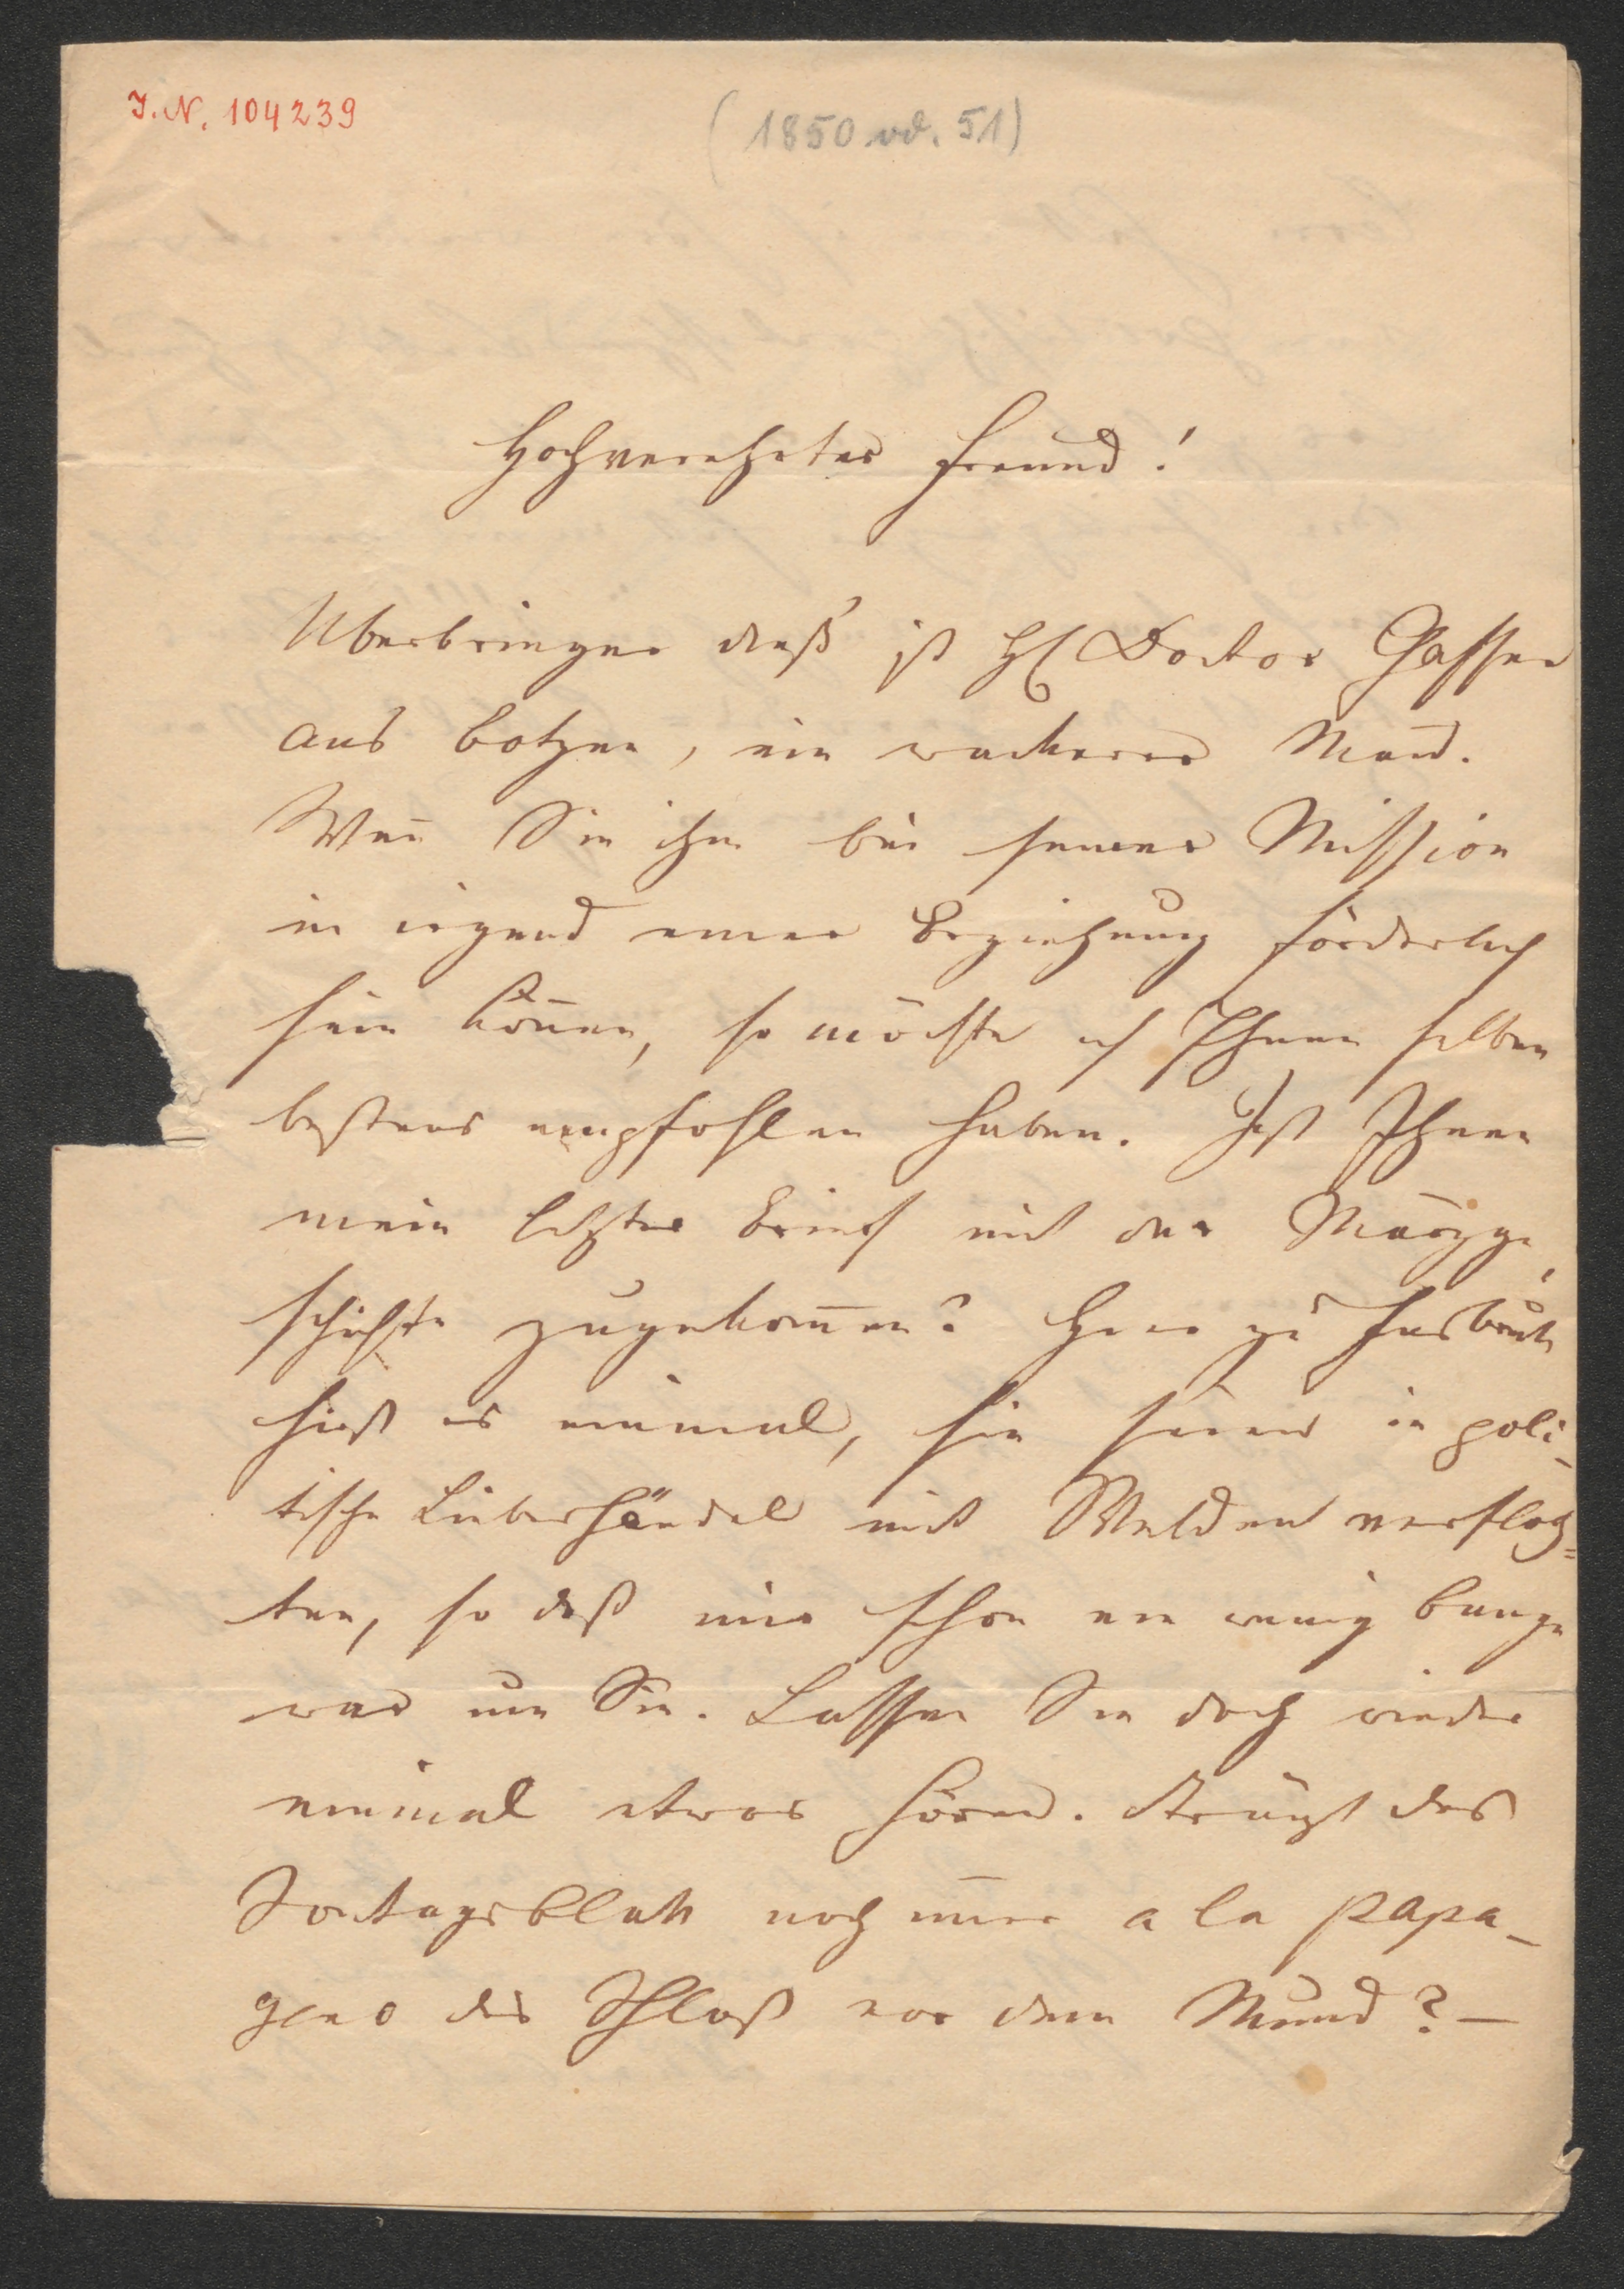 I. N. 104239
(1850 od. 51)
Hochverehrter Freund!
Überbringer dieß ist H Doctor Gasser
aus Botzen, ein wackerer Man̄.
Wen̄ Sie ihm bei seiner Mission
in irgend einer Beziehung förderlich
sein kön̄en, so möchte ich Ihnen selben
bestens empfohlen haben. Ist Ihnen
mein letzter Brief mit der Märzge-
schichte zugekom̄en? Hier zu Insbruck
hieß es einmal, sie seien in poli-
tische Liebeshändel mit Welden verfloch=
ten, so daß mir schon ein wenig bange
war um Sie. Lassen Sie doch wieder
einmal etwas hören. Trägt das
Sontagsblatt noch im̄er a la Papa-
geno das Schloß vor dem Mund? —